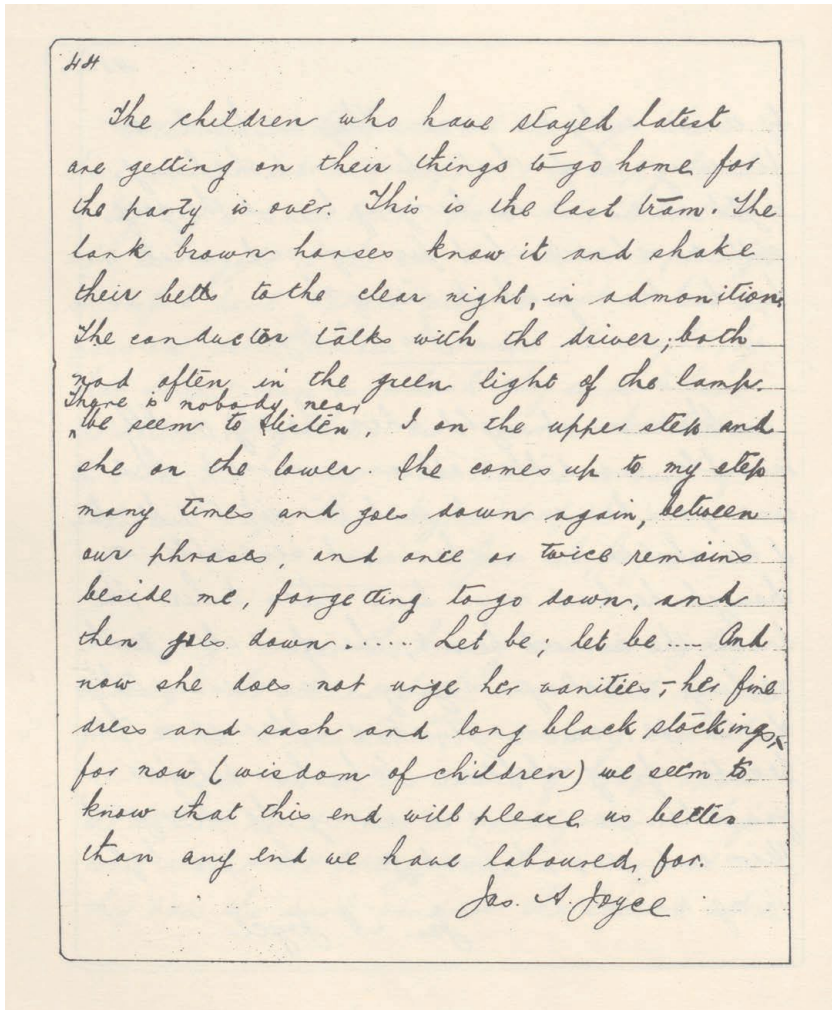 44
The children who have stayed latest
are getting on their things to go home for
the party is over. This is the last tram. The
lank brown horses know it and shake
their bells to the clear night, in admonition.
The conductor talks with the driver; both
nod often in the green light of the lamp.
There is nobody near
We seem to listen, I on the upper step and
she on the lower. She comes up to my step
many times and goes down again, between
our phrases, and once or twice remains
beside me, forgetting to go down, and
then goes down ...... Let be; let be .... And
now she does not urge her vanities, – her fine
dress and sash and long black stockings, –
for now (wisdom of children) we seem to
know that this end will please us better
than any end we have laboured for.
Jas. A. Joyce